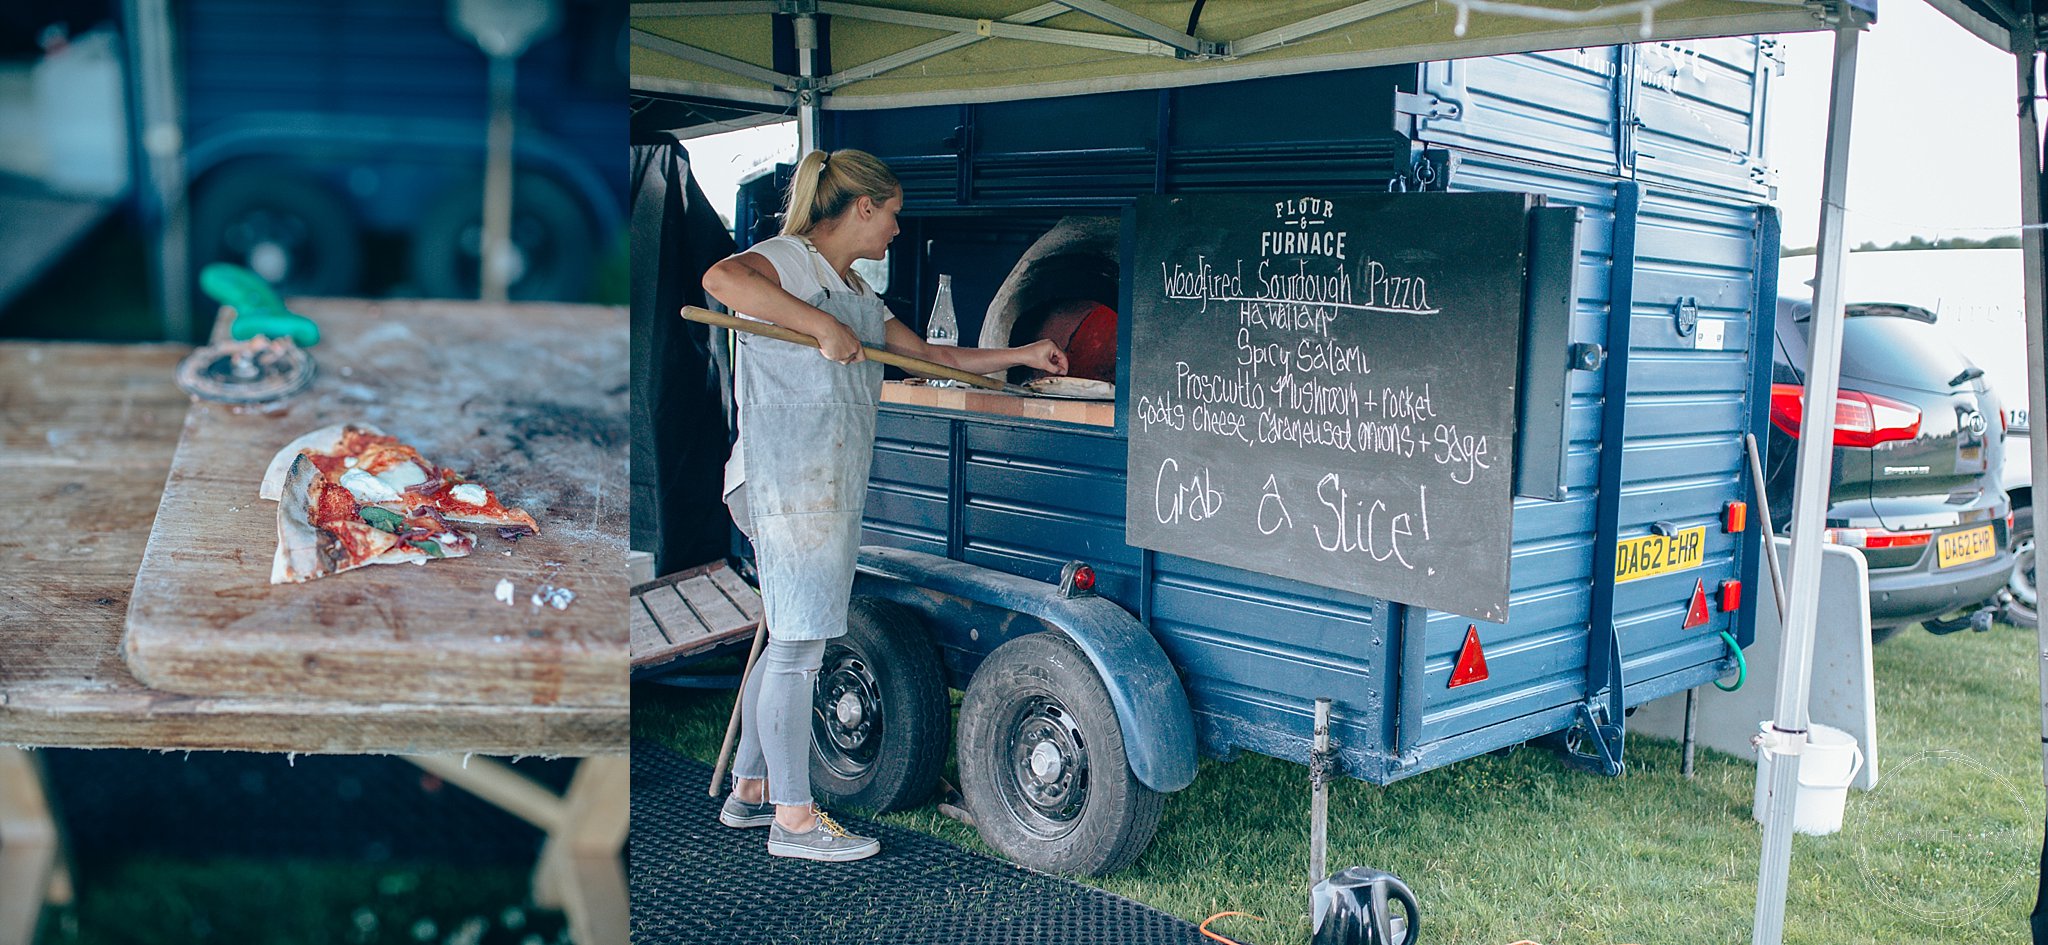 FLOUR
&
FURNACE
Woodfired Sourdough Pizza
Hawaiian
Spicy Salami
Prosciutto Mushroom + rocket
Goats Cheese, Caramelised onions + sage.
Grab a Slice!
DA62 EHR
DA62 EHR